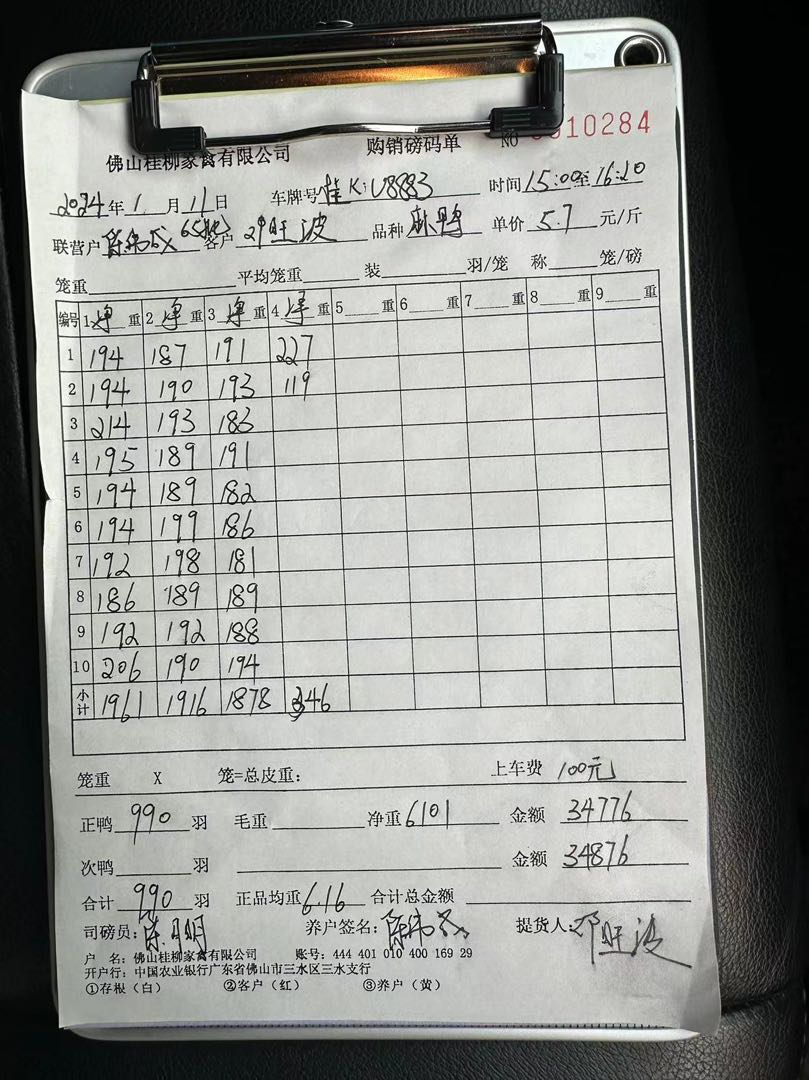 佛山桂柳家禽有限公司 购销磅码单 NO 0010284
2024年1月11日 车牌号桂K:U8883 时间15:00至16:20
联营户陈 65批 客户邓旺波 品种麻鸭 单价5.7元/斤
笼重 平均笼重 装 羽/笼 称 笼/磅
编号 1净重 2净重 3净重 4净重 5重 6重 7重 8重 9重
1 194 187 191 227
2 194 190 193 119
3 214 193 183
4 195 189 191
5 194 189 182
6 194 199 186
7 192 198 181
8 186 189 189
9 192 192 188
10 206 190 194
小计 1961 1916 1878 346
笼重 X 笼=总皮重: 上车费 100元
正鸭990羽 毛重 净重6101 金额 34776
次鸭 羽 金额 34876
合计990羽 正品均重6.16 合计总金额
司磅员:陈明 养户签名:陈 提货人:邓旺波
户 名:佛山桂柳家禽有限公司 账号:444 401 010 400 169 29
开户行:中国农业银行广东省佛山市三水区三水支行
①存根(白) ②客户(红) ③养户(黄)